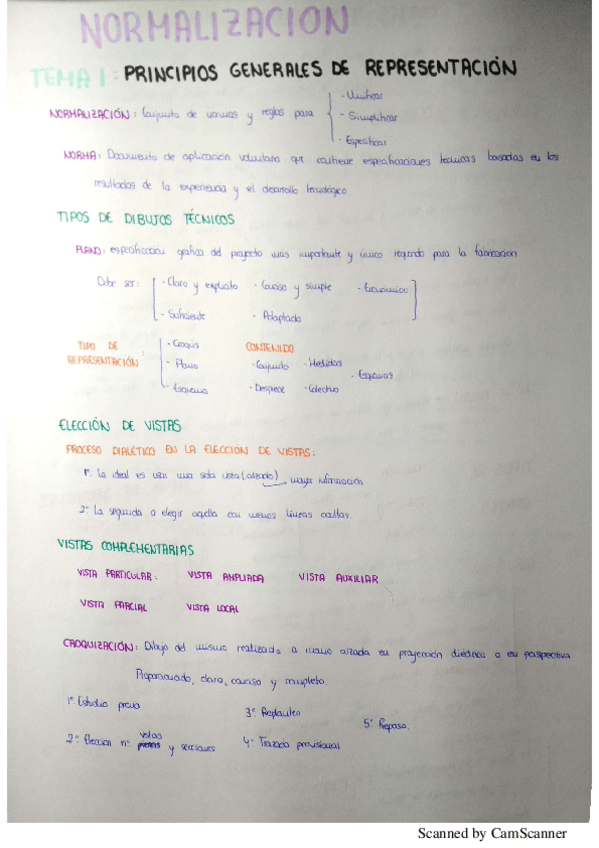 NORMALIZACION
TEMA 1: PRINCIPIOS GENERALES DE REPRESENTACIÓN
NORMALIZACIÓN: Conjunto de normas y reglas para
- Unificar
- Simplificar
- Especificar
NORMA: Documento de aplicación voluntaria que contiene especificaciones técnicas basadas en los
resultados de la experiencia y el desarrollo tecnológico
TIPOS DE DIBUJOS TÉCNICOS
PLANO: especificación gráfica del proyecto más importante y único requerido para la fabricacion
Debe ser: - Claro y explícito - Conciso y simple - Económico
- Suficiente - Adaptado
TIPO DE REPRESENTACIÓN:
- Croquis
- Plano
- Esquema
CONTENIDO
- Conjunto - Medidas - Esquemas
- Despiece - Colectivo
ELECCIÓN DE VISTAS
PROCESO DIALÉTICO EN LA ELECCIÓN DE VISTAS:
1º. Lo ideal es usar una sola vista (alzado) mayor información
2º. La segunda a elegir aquella con menos líneas ocultas.
VISTAS COMPLEMENTARIAS
VISTA PARTICULAR: VISTA AMPLIADA VISTA AUXILIAR
VISTA PARCIAL VISTA LOCAL
CROQUIZACIÓN: Dibujo del mismo realizado a mano alzada en proyección diédrica o en perspectiva
Proporcionado, claro, conciso y completo
1º. Estudio previo 3º. Replanteo 5º. Repaso.
2º. Eleccion nº. vistas y secciones 4º. Trazado provisional
Scanned by CamScanner